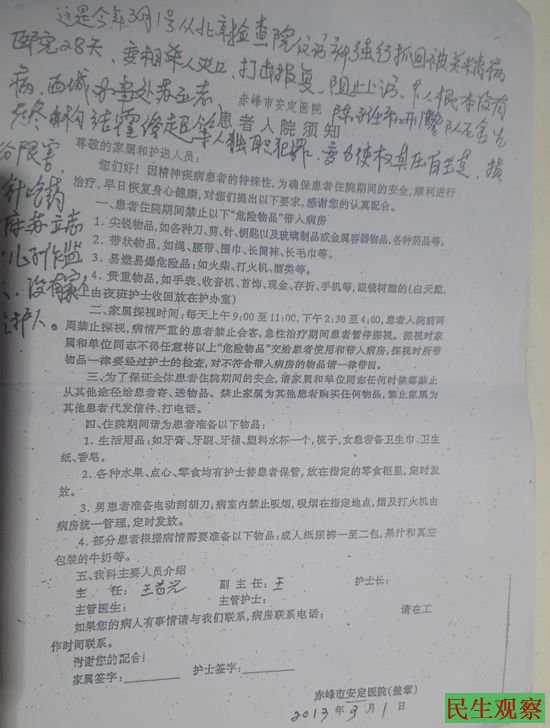 这是今年3月1号从北京检查院信访部强行抓回被关精神病
医院28天、变相杀人灭口、打击报复、阻止上访、本人根本没有
病、西城办事处苏立志
赤峰市安定医院
患者入院须知
尊敬的家属和护送人员：
您们好！因精神疾病患者的特殊性，为确保患者住院期间的安全，顺利进行
治疗，早日恢复身心健康，对您们提出以下要求，感谢您的认真配合。
一、患者住院期间禁止以下“危险物品”带入病房
1. 尖锐物品，如各种刀、剪、针、钥匙以及玻璃制品或金属容器物品，各种药品等。
2. 带状物品，如绳、腰带、围巾、长筒袜、长毛巾等。
3. 易燃易爆危险品：如火柴、打火机、酒类等。
4. 贵重物品，如手表、收音机、首饰、现金、存折、手机等，眼镜树酯的（白天戴，
晚上由夜班护士收回放在护办室）
二、家属探视时间：每天上午9:00至11:00，下午2:30至4:00，患者入院前两
周禁止探视，病情严重的患者禁止会客，急性治疗期间患者暂停探视。探视时家
属和单位同志不得任意将以上“危险物品”交给患者使用和带入病房，探视时所带
物品一律要经过护士的检查，对不符合带入病房的物品请一律带回。
三、为了保证全体患者住院期间的安全，请家属和单位同志任何时候都禁止
从其他途径给患者寄、送物品。禁止家属为其他患者购买任何物品，禁止家属为
其他患者代发信件、打电话。
四、住院期间请为患者准备以下物品：
1. 生活用品：如牙膏、牙刷、牙桶、塑料水杯一个，梳子，女患者备卫生巾、卫生
纸、香皂。
2. 各种水果、点心、零食均有护士替患者保管，放在指定的零食柜里，定时发
放。
3. 男患者准备电动刮胡刀；病室内禁止吸烟，吸烟在指定地点，烟及打火机由
病房统一管理，定时发放。
4. 部分患者根据病情需要准备以下物品：成人纸尿裤一至二包，果汁和真空
包装的牛奶等。
五、我科主要人员介绍
主　任：　副主任：王　护士长：
主管医生：　主管护士：
如果您的病人有事情请与我们联系，病房联系电话：　请在工
作时间联系。
谢谢您的配合！
家属签字：　护士签字：
赤峰市安定医院（盖章）
2013年3月1日
民生观察